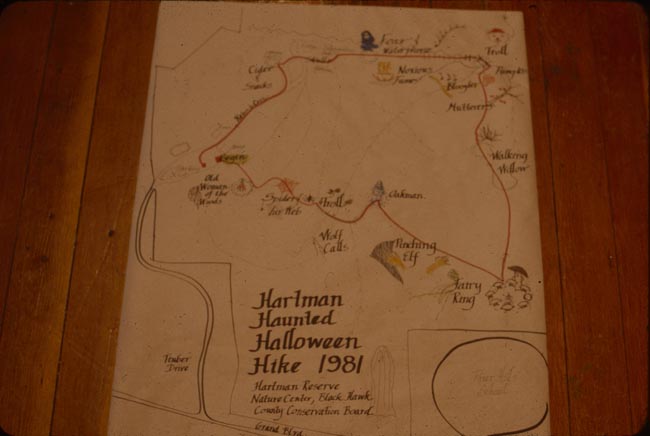 Fear of
Waterphone
Troll
Cider
&
Snacks
Noxious
Fumes
Bloogles
Pumpkin
Mutterer
Walking
Willow
Old
Woman
of the
Woods
Spider
Troll
Oakman
Wolf
Calls
Pinching
Elf
Fairy
Ring
Hartman
Haunted
Halloween
Hike 1981
Hartman Reserve
Nature Center, Black Hawk
County Conservation Board
Grand Blvd
Drive